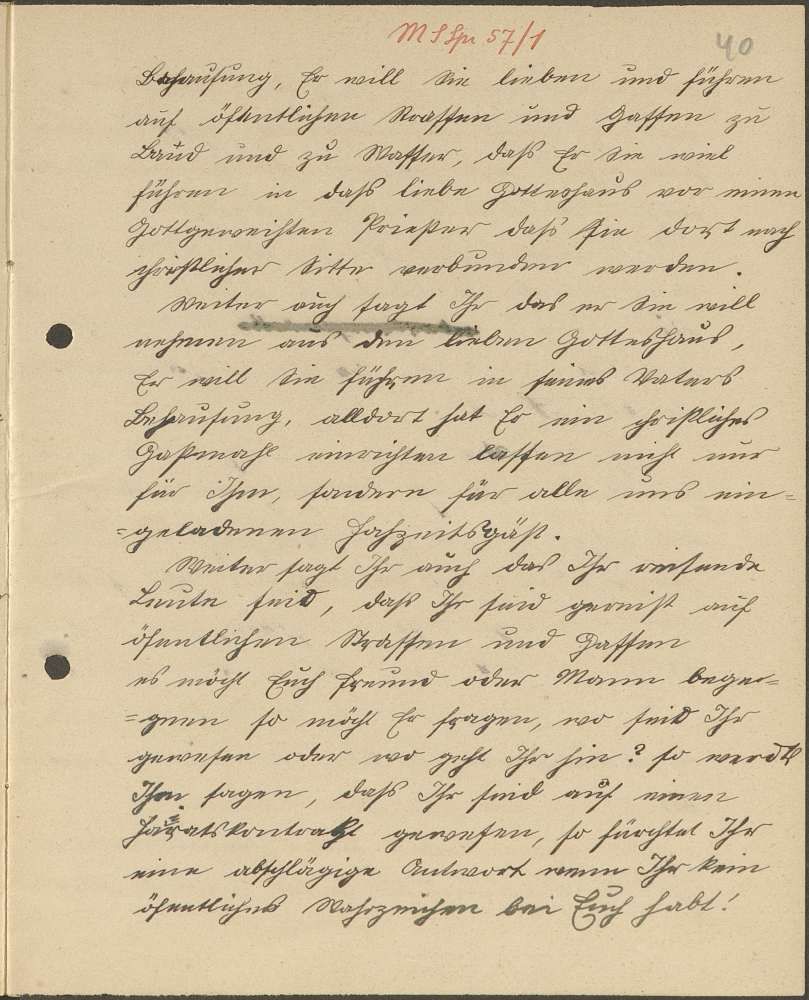 M S Spr 57/1
40
Behausung, Er will Sie lieben und führen
auf öfentlichen Strassen und Gassen zu
Land und zu Wasser, daß Er Sie will
führen in daß liebe Gotteshaus vor einen
Gottgeweihten Priester daß Sie dort nach
christlicher Sitte verbunden werden.
Weiter auch sagt Ihr das er Sie will
nehmen aus den lieben Gotteshaus,
Er will Sie führen in seines Vaters
Behausung, alldort hat Er ein christliches
Gastmahl einrichten lassen nicht nur
für Ihm, sondern für alle uns ein=
=geladenen Hochzeitsgäst.
Weiter sagt Ihr auch das Ihr reisende
Leute seid, daß Ihr seid gereist auf
öfentlichen Strassen und Gassen
es möcht Euch Freund oder Mann bege=
=gnen so möcht Er fragen, wo seid Ihr
gewesen oder wo geht Ihr hin? so werdt
Ihm sagen, daß Ihr seid auf einen
Hairatskontrakt gewesen, so fürchtet Ihr
eine abschlägige Antwort wenn Ihr kein
öfentliches Wahrzeichen bei Euch habt!